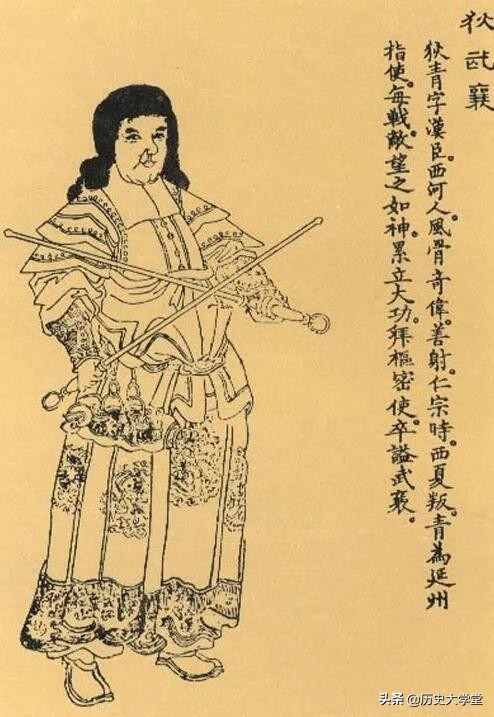 狄武襄
狄青字漢臣。西河人。風骨奇偉。善射。仁宗時。西夏叛。青為延州
指使。每戰。敵望之如神。累立大功。拜樞密使。卒謚武襄。
头条 @历史大学堂